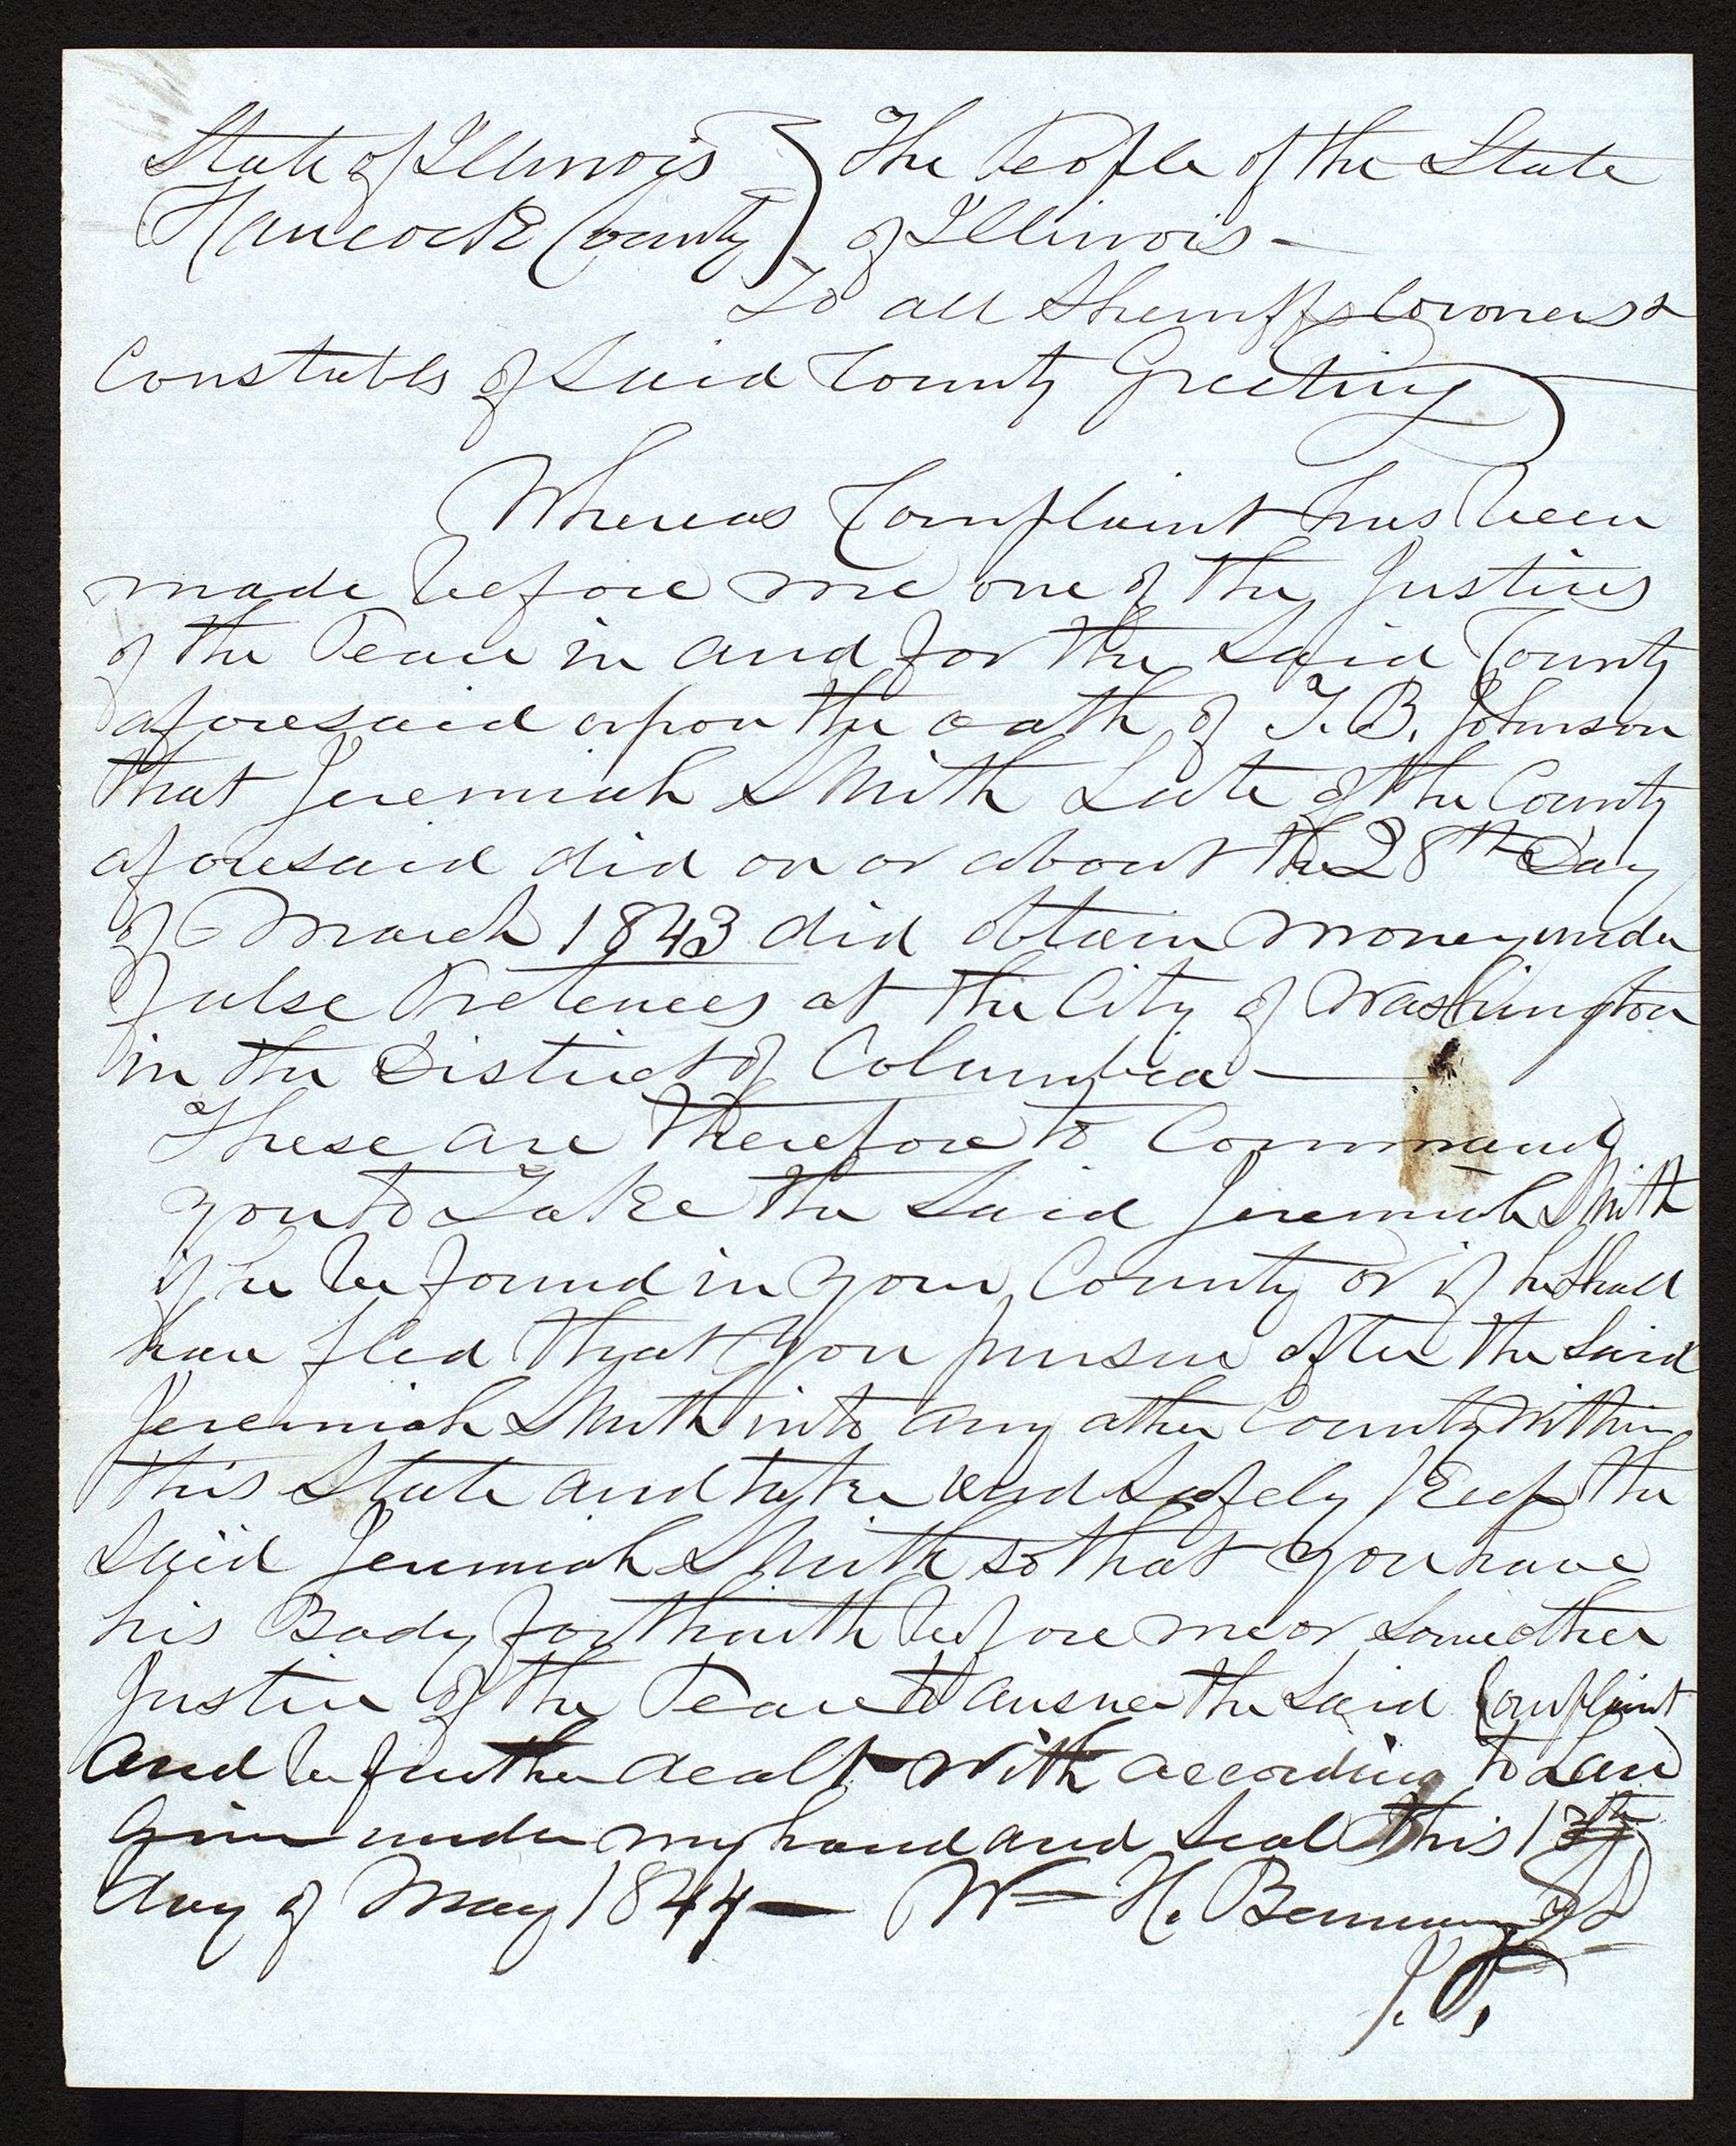 State of Illinois } The People of the State
Hancock County } of Illinois —
To all Sheriffs Coroners &
Constables of Said County Greeting
Whereas Complaint has been
made before me one of the Justices
of the Peace in and for the Said County
aforesaid upon the oath of T. B. Johnson
that Jeremiah Smith Late of the County
aforesaid did on or about the 28th Day
of March 1843 did obtain money under
false Pretences at the City of Washington
in the District of Columbia —
These are Therefore to Command
you to Take the Said Jeremiah Smith
if he be found in your County or if he Shall
have fled that you pursue after the Said
Jeremiah Smith into any other County Within
this State and take and Safely Keep the
Said Jeremiah Smith so that you have
his Body forthwith before me or Some other
Justice of the Peace to answer the Said Complaint
And be further dealt With according to Law
Given under my hand and Seal this
day of May 1844 — Wm H. Bennum
J. P.